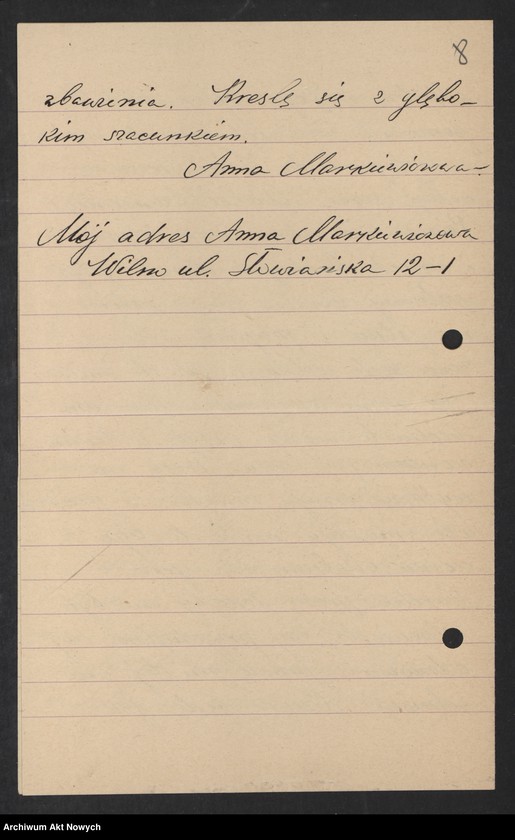 8
zbawienia. Kreslę się z głębo-
kim szacunkiem.
Anna Markiewiczowa-
Mój adres Anna Markiewiczowa
Wilno ul. Słowiańska 12-1
Archiwum Akt Nowych